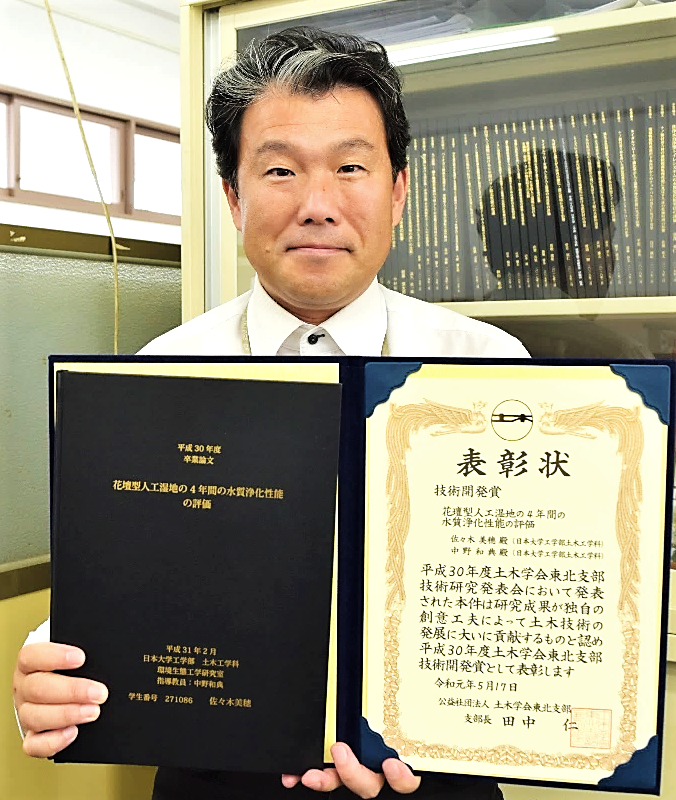 平成30年度
卒業論文
花壇型人工湿地の4年間の水質浄化性能
の評価
平成31年2月
日本大学工学部 土木工学科
環境生態工学研究室
指導教員:中野和典
学生番号 271086 佐々木美穂
表彰状
技術開発賞
花壇型人工湿地の4年間の
水質浄化性能の評価
佐々木 美穂 殿(日本大学工学部土木工学科)
中野 和典 殿(日本大学工学部土木工学科)
平成30年度土木学会東北支部
技術研究発表会において発表
された本件は研究成果が独自の
創意工夫によって土木技術の
発展に大いに貢献するものと認め
平成30年度土木学会東北支部
技術開発賞として表彰します
令和元年5月17日
公益社団法人 土木学会東北支部
支部長 田中 仁